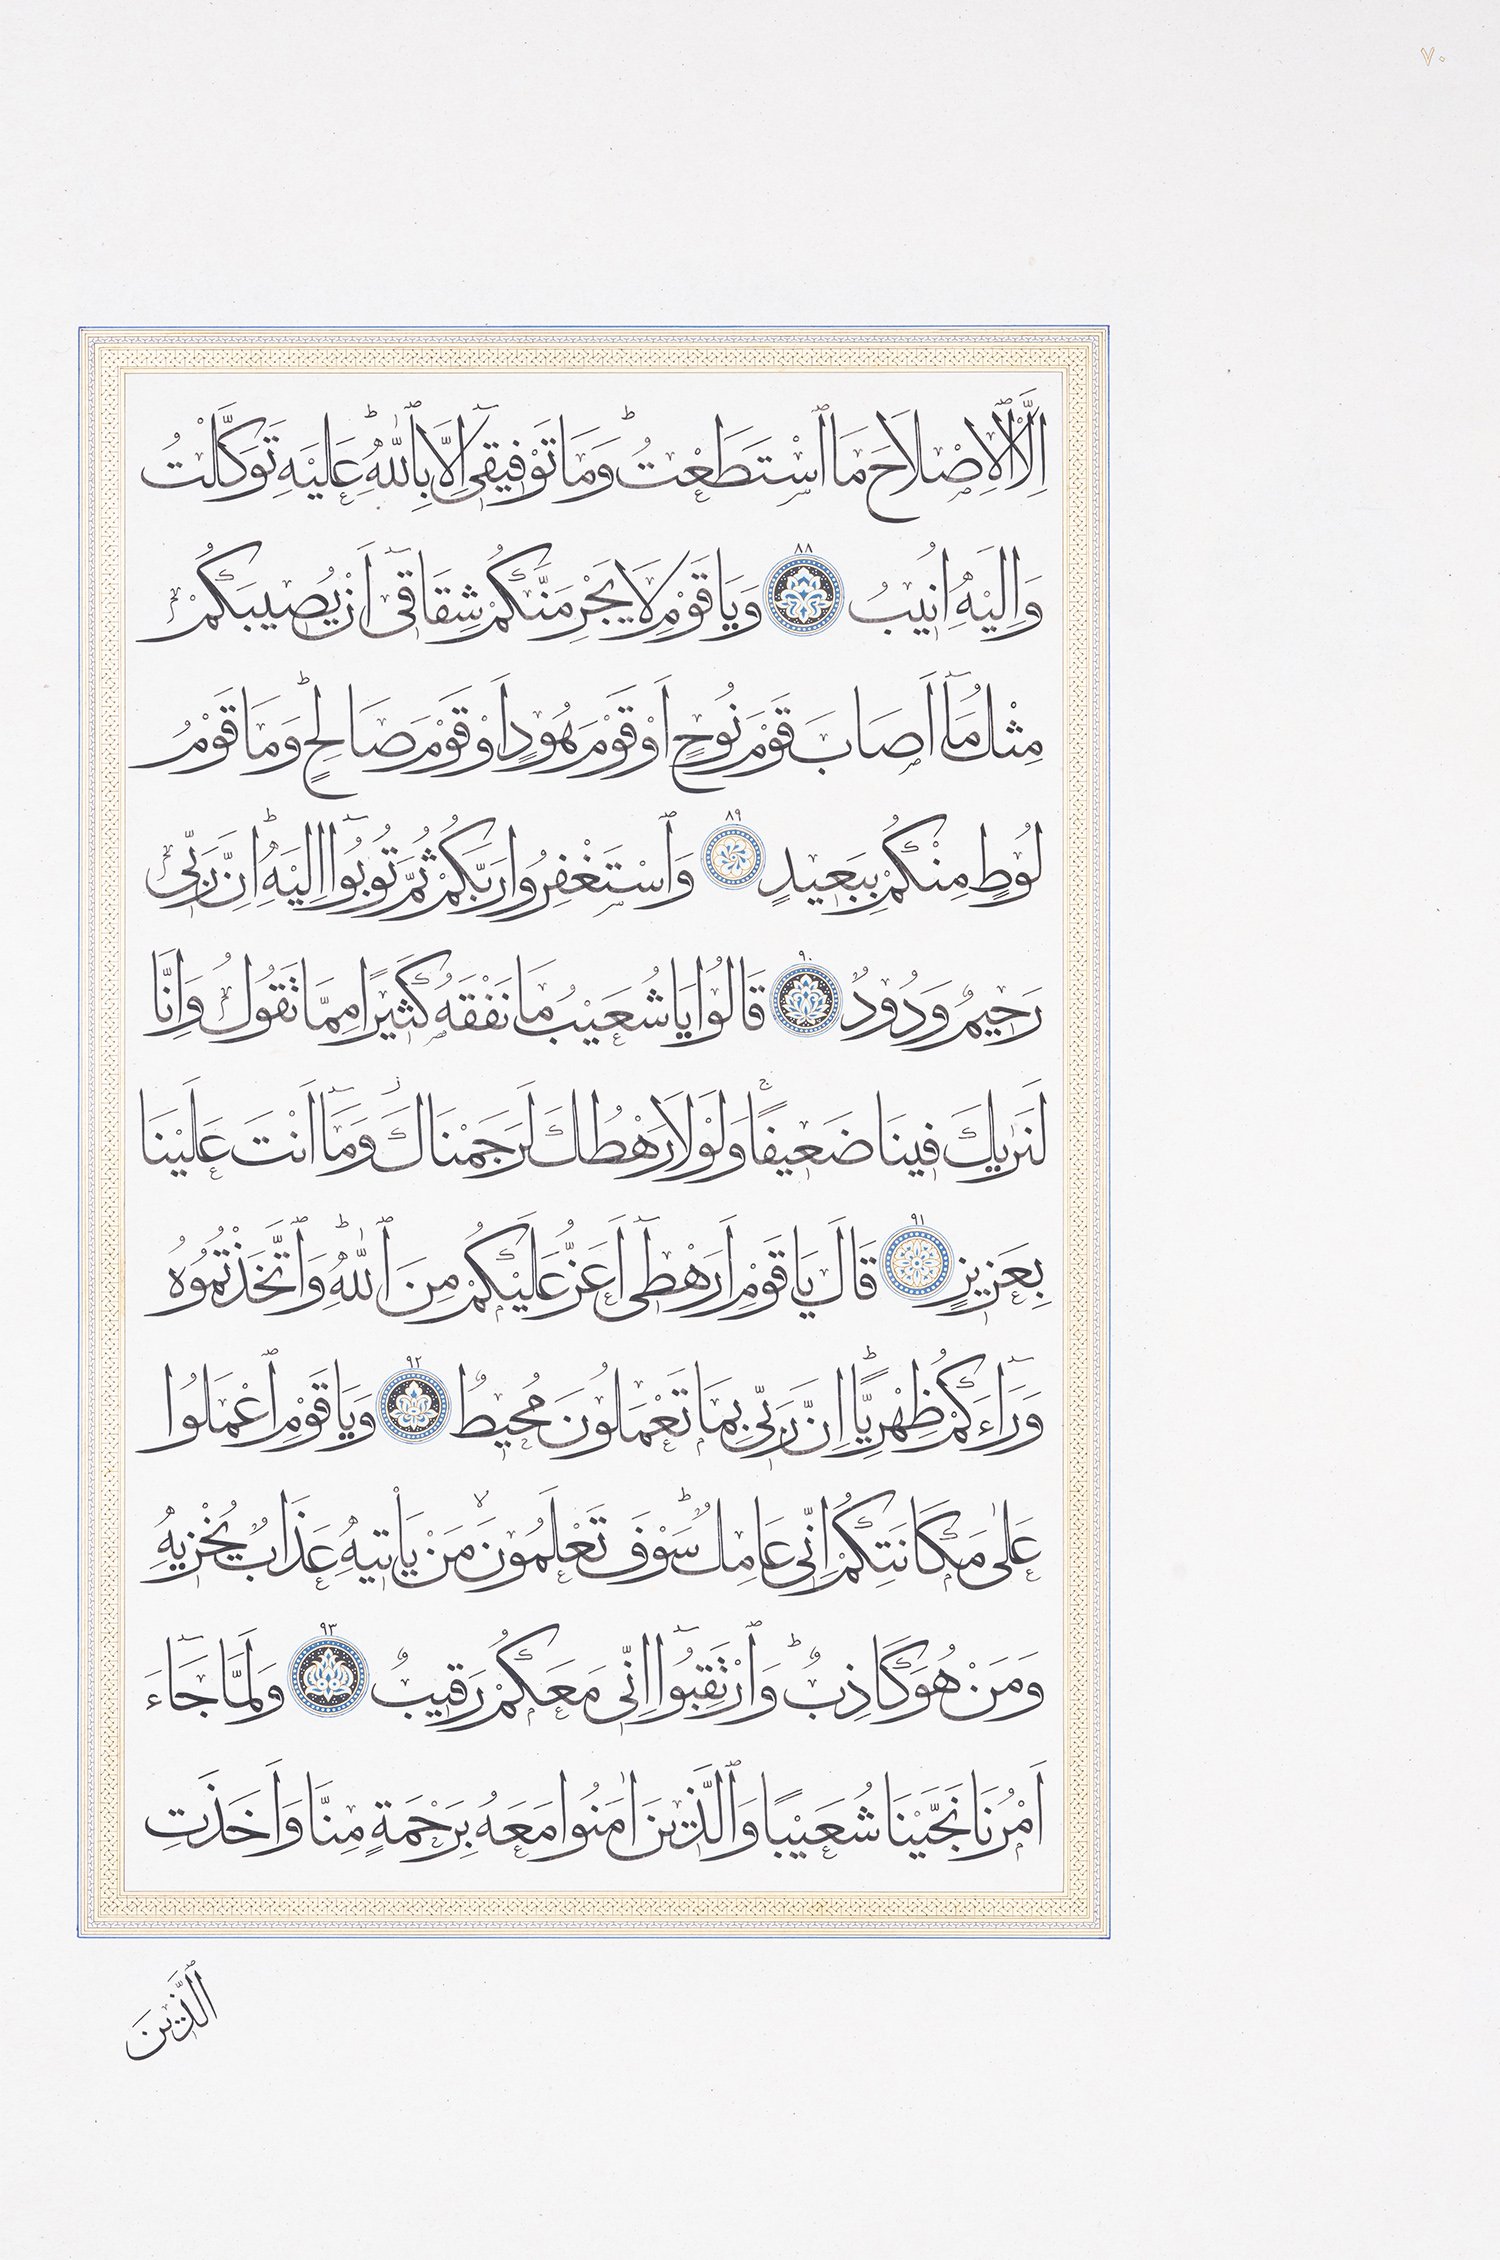 ٧٠
اِلَّا ٱلْاِصْلَاحَ مَا ٱسْتَطَعْتُ ؕ وَمَا تَوْفٖيقٖٓى اِلَّا بِٱللّٰهِ ؕ عَلَيْهِ تَوَكَّلْتُ
وَاِلَيْهِ اُنٖيبُ ٨٨ وَيَا قَوْمِ لَا يَجْرِمَنَّكُمْ شِقَاقٖٓى اَنْ يُصٖيبَكُمْ
مِثْلُ مَٓا اَصَابَ قَوْمَ نُوحٍ اَوْ قَوْمَ هُودٍ اَوْ قَوْمَ صَالِحٍ ؕ وَمَا قَوْمُ
لُوطٍ مِنْكُمْ بِبَعٖيدٍ ٨٩ وَٱسْتَغْفِرُوا رَبَّكُمْ ثُمَّ تُوبُٓوا اِلَيْهِ ؕ اِنَّ رَبّٖى
رَحٖيمٌ وَدُودٌ ٩٠ قَالُوا يَا شُعَيْبُ مَا نَفْقَهُ كَثٖيرًا مِمَّا تَقُولُ وَاِنَّا
لَنَرٰيكَ فٖينَا ضَعٖيفًا ۚ وَلَوْلَا رَهْطُكَ لَرَجَمْنَاكَ ؗ وَمَٓا اَنْتَ عَلَيْنَا
بِعَزٖيزٍ ٩١ قَالَ يَا قَوْمِ اَرَهْطٖٓى اَعَزُّ عَلَيْكُمْ مِنَ ٱللّٰهِ ؕ وَٱتَّخَذْتُمُوهُ
وَرَٓاءَكُمْ ظِهْرِيًّا ؕ اِنَّ رَبّٖى بِمَا تَعْمَلُونَ مُحٖيطٌ ٩٢ وَيَا قَوْمِ ٱعْمَلُوا
عَلٰى مَكَانَتِكُمْ اِنّٖى عَامِلٌ ؕ سَوْفَ تَعْلَمُونَ ۙ مَنْ يَأْتٖيهِ عَذَابٌ يُخْزٖيهِ
وَمَنْ هُوَ كَاذِبٌ ؕ وَٱرْتَقِبُٓوا اِنّٖى مَعَكُمْ رَقٖيبٌ ٩٣ وَلَمَّا جَٓاءَ
اَمْرُنَا نَجَّيْنَا شُعَيْبًا وَٱلَّذٖينَ اٰمَنُوا مَعَهُ بِرَحْمَةٍ مِنَّا وَاَخَذَتِ
ٱلَّذٖينَ